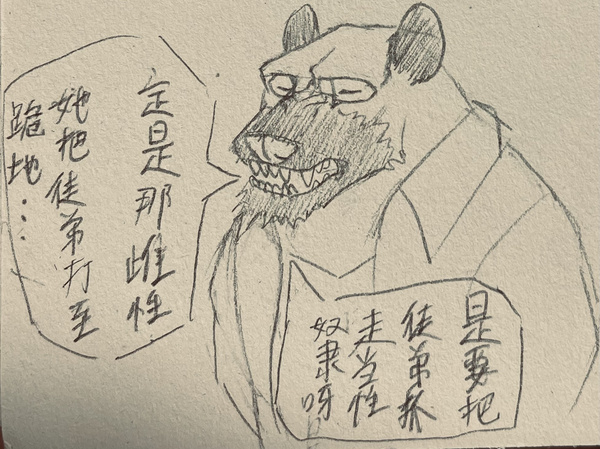 定是那雌性
她把徒弟打至
跪地…
是要把
徒弟抓
走当性
奴隶呀